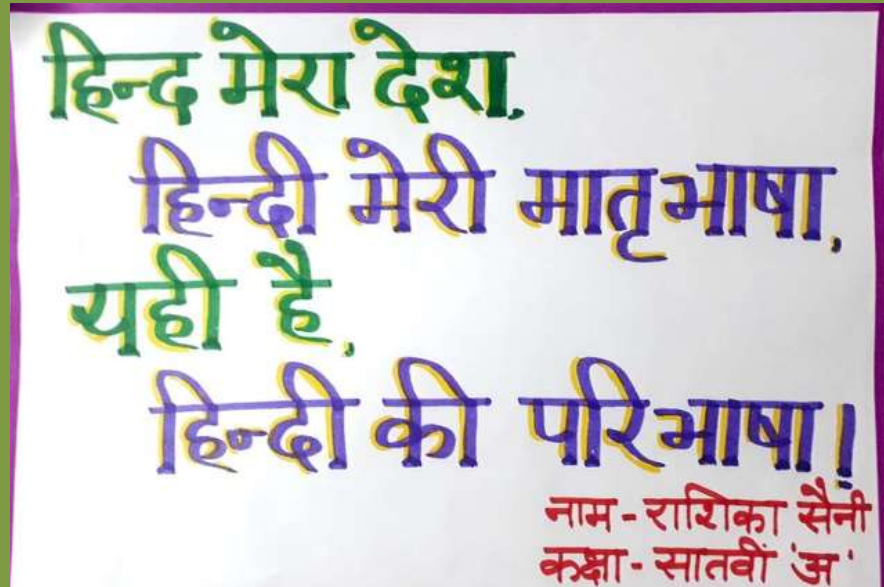 हिन्द मेरा देश,
हिन्दी मेरी मातृभाषा,
यही है,
हिन्दी की परिभाषा!
नाम - राशिका सैनी
कक्षा - सातवीं 'अ'